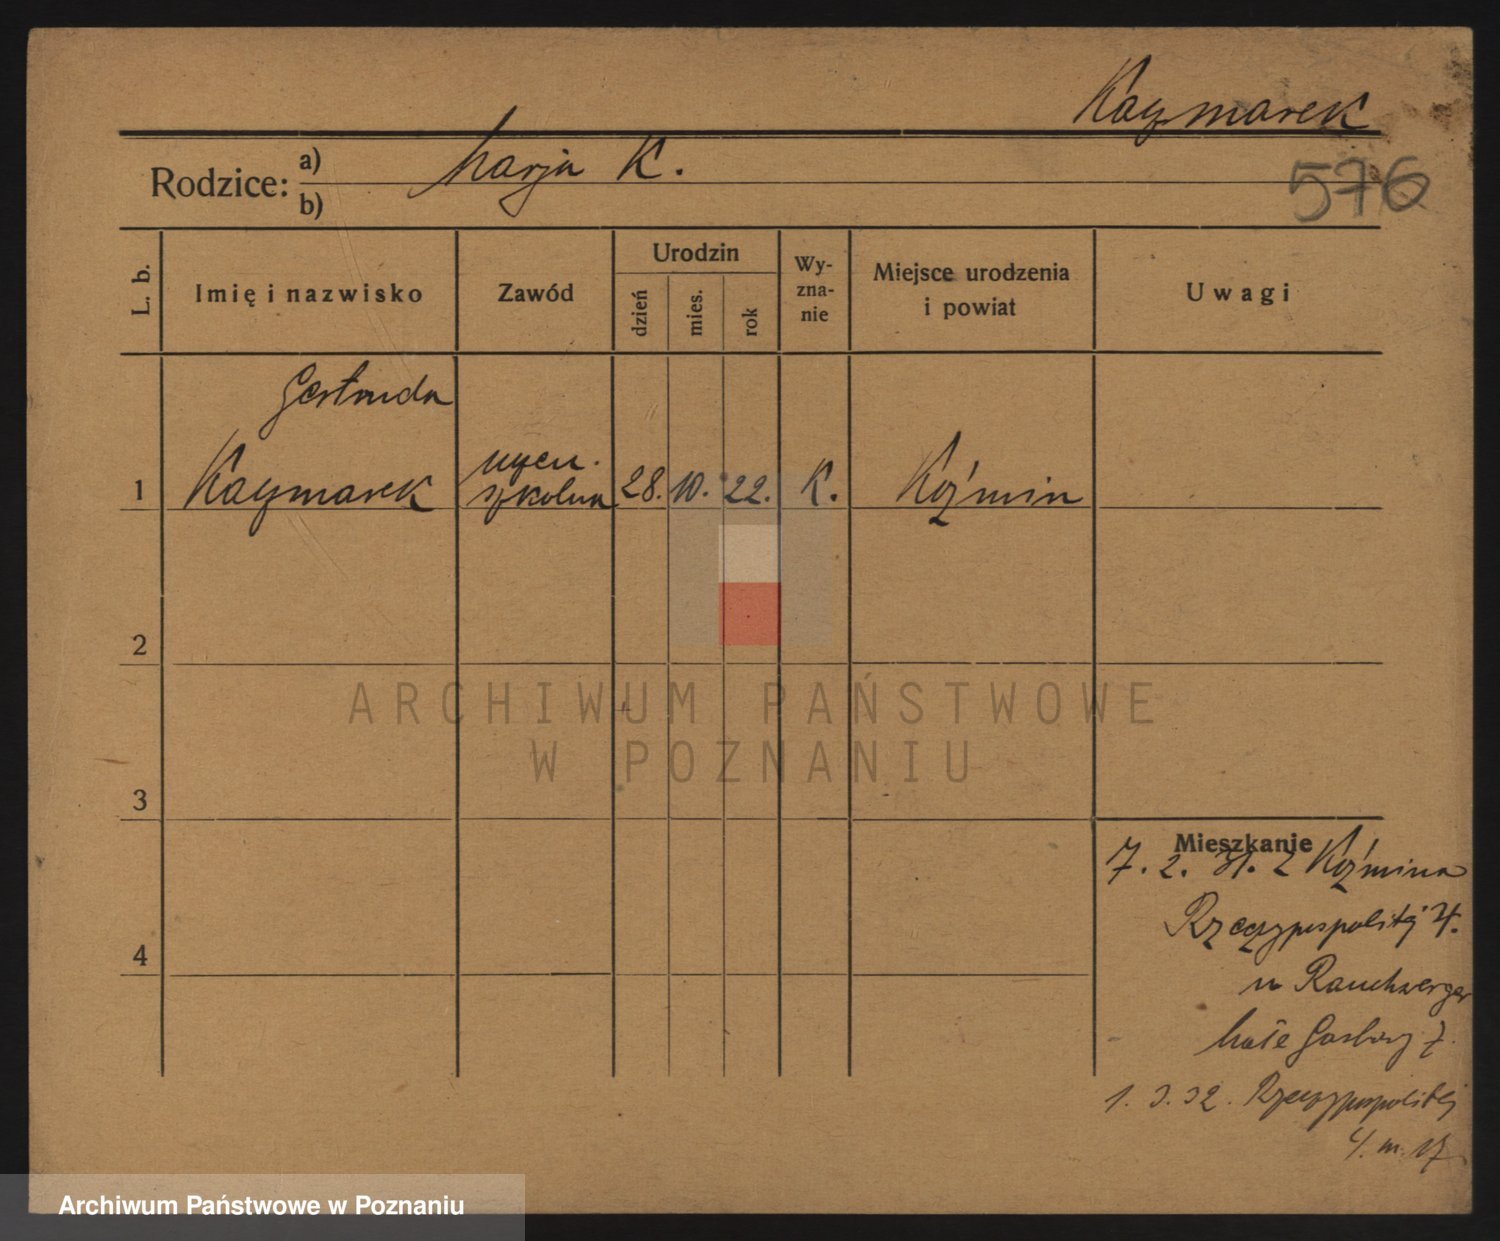 Kaczmarek
576
Rodzice: a) Marja K.
b)
L. b. Imię i nazwisko Zawód Urodzin dzień mies. rok Wy-zna-nie Miejsce urodzenia i powiat Uwagi
Gertruda
1 Kaczmarek uczen. szkolna 28. 10. 22. K. Koźmin
2
ARCHIWUM PAŃSTWOWE
W POZNANIU
3
Mieszkanie
7. 2. 31. z Koźmina
Rzeczypospolitej 4.
u Rauchwerger
Małe Garbary 7.
1. 3. 32. Rzeczypospolitej
4. m. 17
4
Archiwum Państwowe w Poznaniu